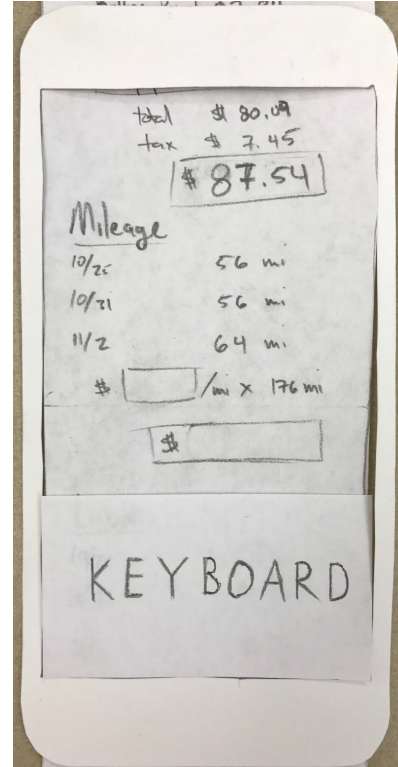 total $ 80.09
tax $ 7.45
$ 87.54
Mileage
10/25 56 mi
10/31 56 mi
11/2 64 mi
$ /mi x 176 mi
$
KEYBOARD